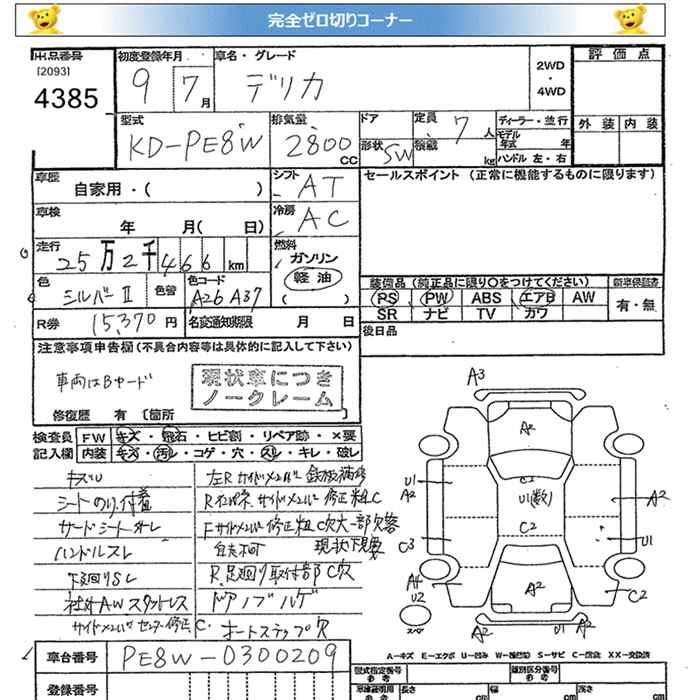 完全ゼロ切りコーナー
出品番号
[2093]
4385
初度登録年月
9 7月
車名・グレード
デリカ
2WD
・
4WD
評価点
外装 内装
型式
KD-PE8W
排気量
2800 CC
ドア
形状 SW
定員 7人
積載 kg
ディーラー・並行
モデル年式 年
ハンドル左・右
車歴
自家用・( )
シフト AT
車検
年 月( 日)
冷房 AC
走行
25万2千466km
燃料
ガソリン
軽油
( )
色
シルバーII
色替
色コード
A26 A37
R券 15,370円
名変通知期限 月 日
セールスポイント (正常に機能するものに限ります)
装備品(純正品に限り○をつけてください)
PS PW ABS エアB AW
SR ナビ TV カワ
新車保証書
有・無
後日品
注意事項申告欄(不具合内容等は具体的に記入して下さい)
車両はBヤード
現状車につき
ノークレーム
修復歴 有 〔箇所
検査員
記入欄
FW キズ・飛石・ヒビ割・リペア跡・×要
内装 キズ・汚レ・コゲ・穴・スレ・キレ・破レ
キズU
シートのり、付着
サードシートオレ
ハンドルスレ
下廻りSし
社外AWスタッドレス
サイドメンバーセンター修正C.
左Rサイドメンバー鉄板補修
Rインパネ サイドメンバー修正粗C
Fサイドメンバー修正粗C穴大一部欠落
自走不可 現状下見要
R.足廻り取付部C穴
ドアノブハゲ
オートステップ穴
A3
A2
U1
A2
U1(数)
C2
A2
C3
U1
C2
A4
U2
A2
C2
スペア
A2
U1
A2
A-キズ E-エクボ U-凹み W-波(凹凸) S-サビ C-腐食 XX-交換済
車台番号 PE8W-0300209
登録番号
型式指定番号
参考
類別区分番号
参考
長さ cm
幅 cm
高さ cm